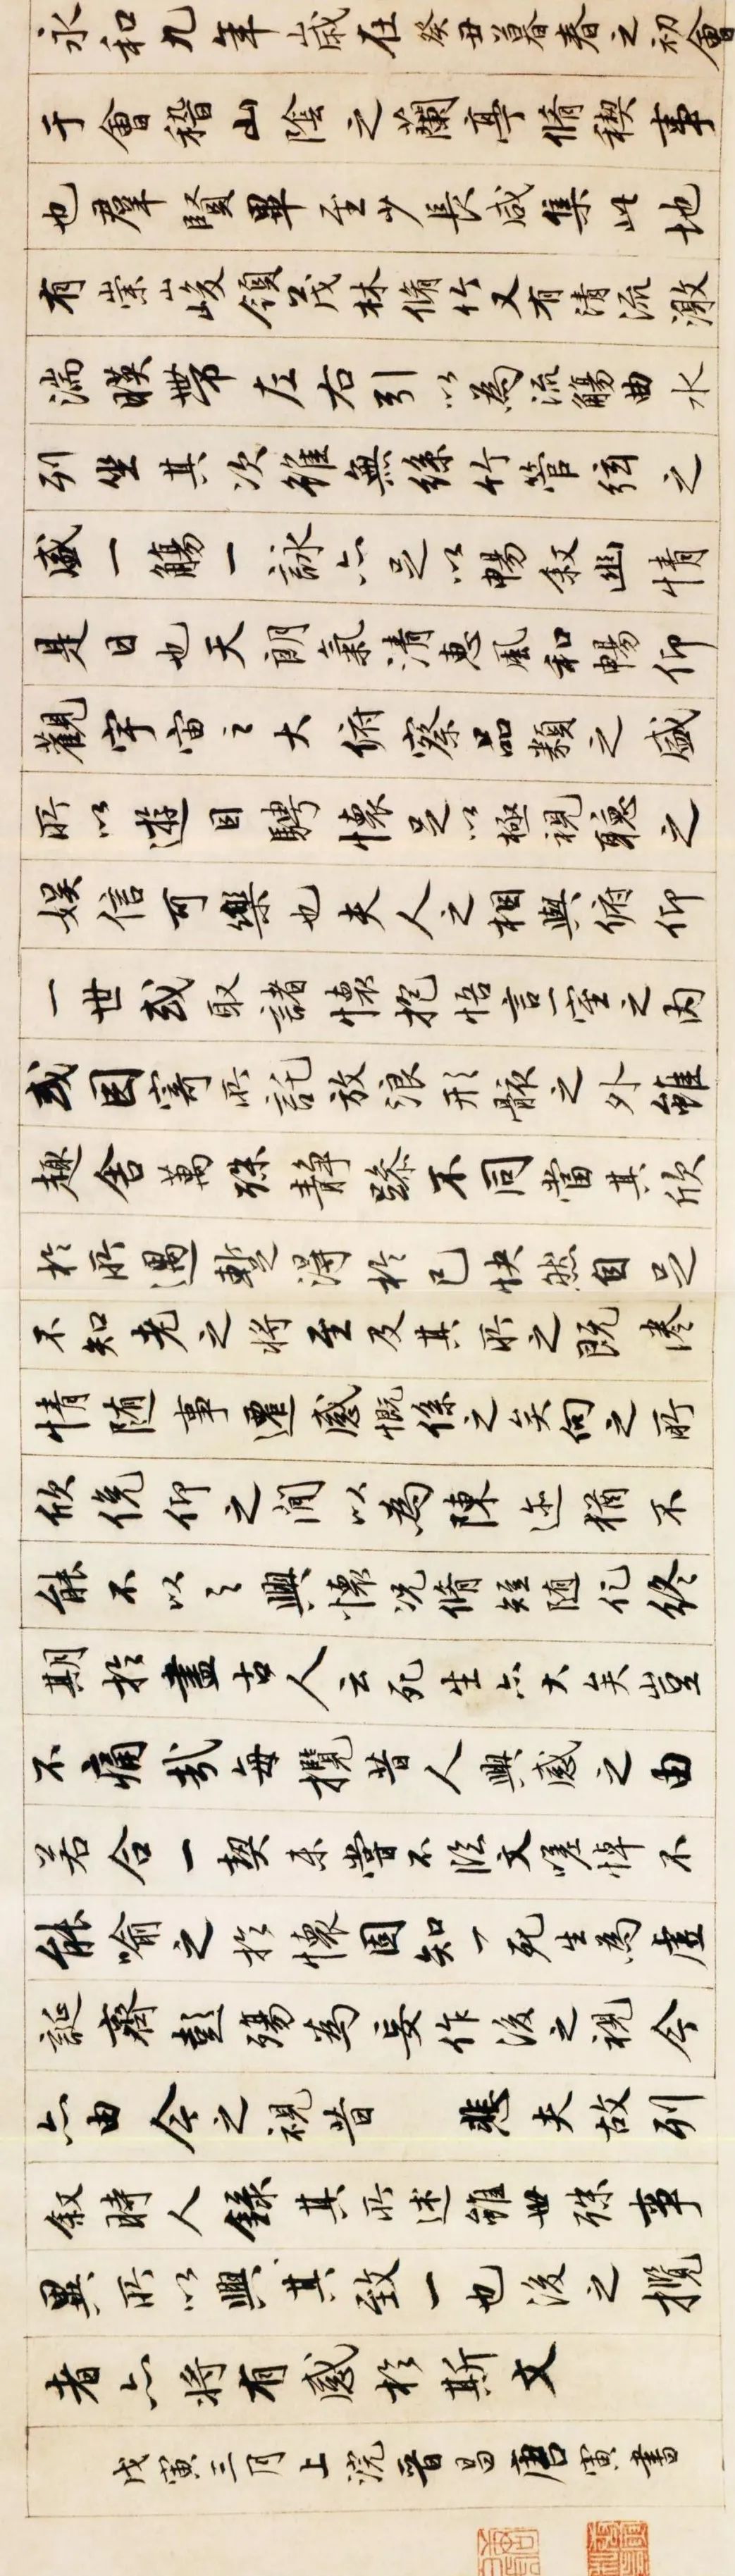 永和九年歳在癸丑暮春之初會
于會稽山陰之蘭亭脩稧事
也羣賢畢至少長咸集此地
有崇山峻領茂林脩竹又有清流激
湍暎帶左右引以為流觴曲水
列坐其次雖無絲竹管弦之
盛一觴一詠亦足以暢叙幽情
是日也天朗氣清惠風和暢仰
觀宇宙之大俯察品類之盛
所以遊目騁懷足以極視聽之
娱信可樂也夫人之相與俯仰
一世或取諸懷抱悟言一室之内
或因寄所託放浪形骸之外雖
趣舍萬殊静躁不同當其欣
於所遇暫得於己快然自足
不知老之將至及其所之既惓
情随事遷感慨係之矣向之所
欣俛仰之間以為陳迹猶不
能不以之興懷况脩短随化終
期於盡古人云死生亦大矣豈
不痛哉每攬昔人興感之由
若合一契未嘗不臨文嗟悼不
能喻之於懷固知一死生為虛
誕齊彭殤為妄作後之視今
亦由今之視昔 悲夫故列
叙時人録其所述雖世殊事
異所以興其致一也後之攬
者亦將有感於斯文
戊寅三月上浣晉昌唐寅書